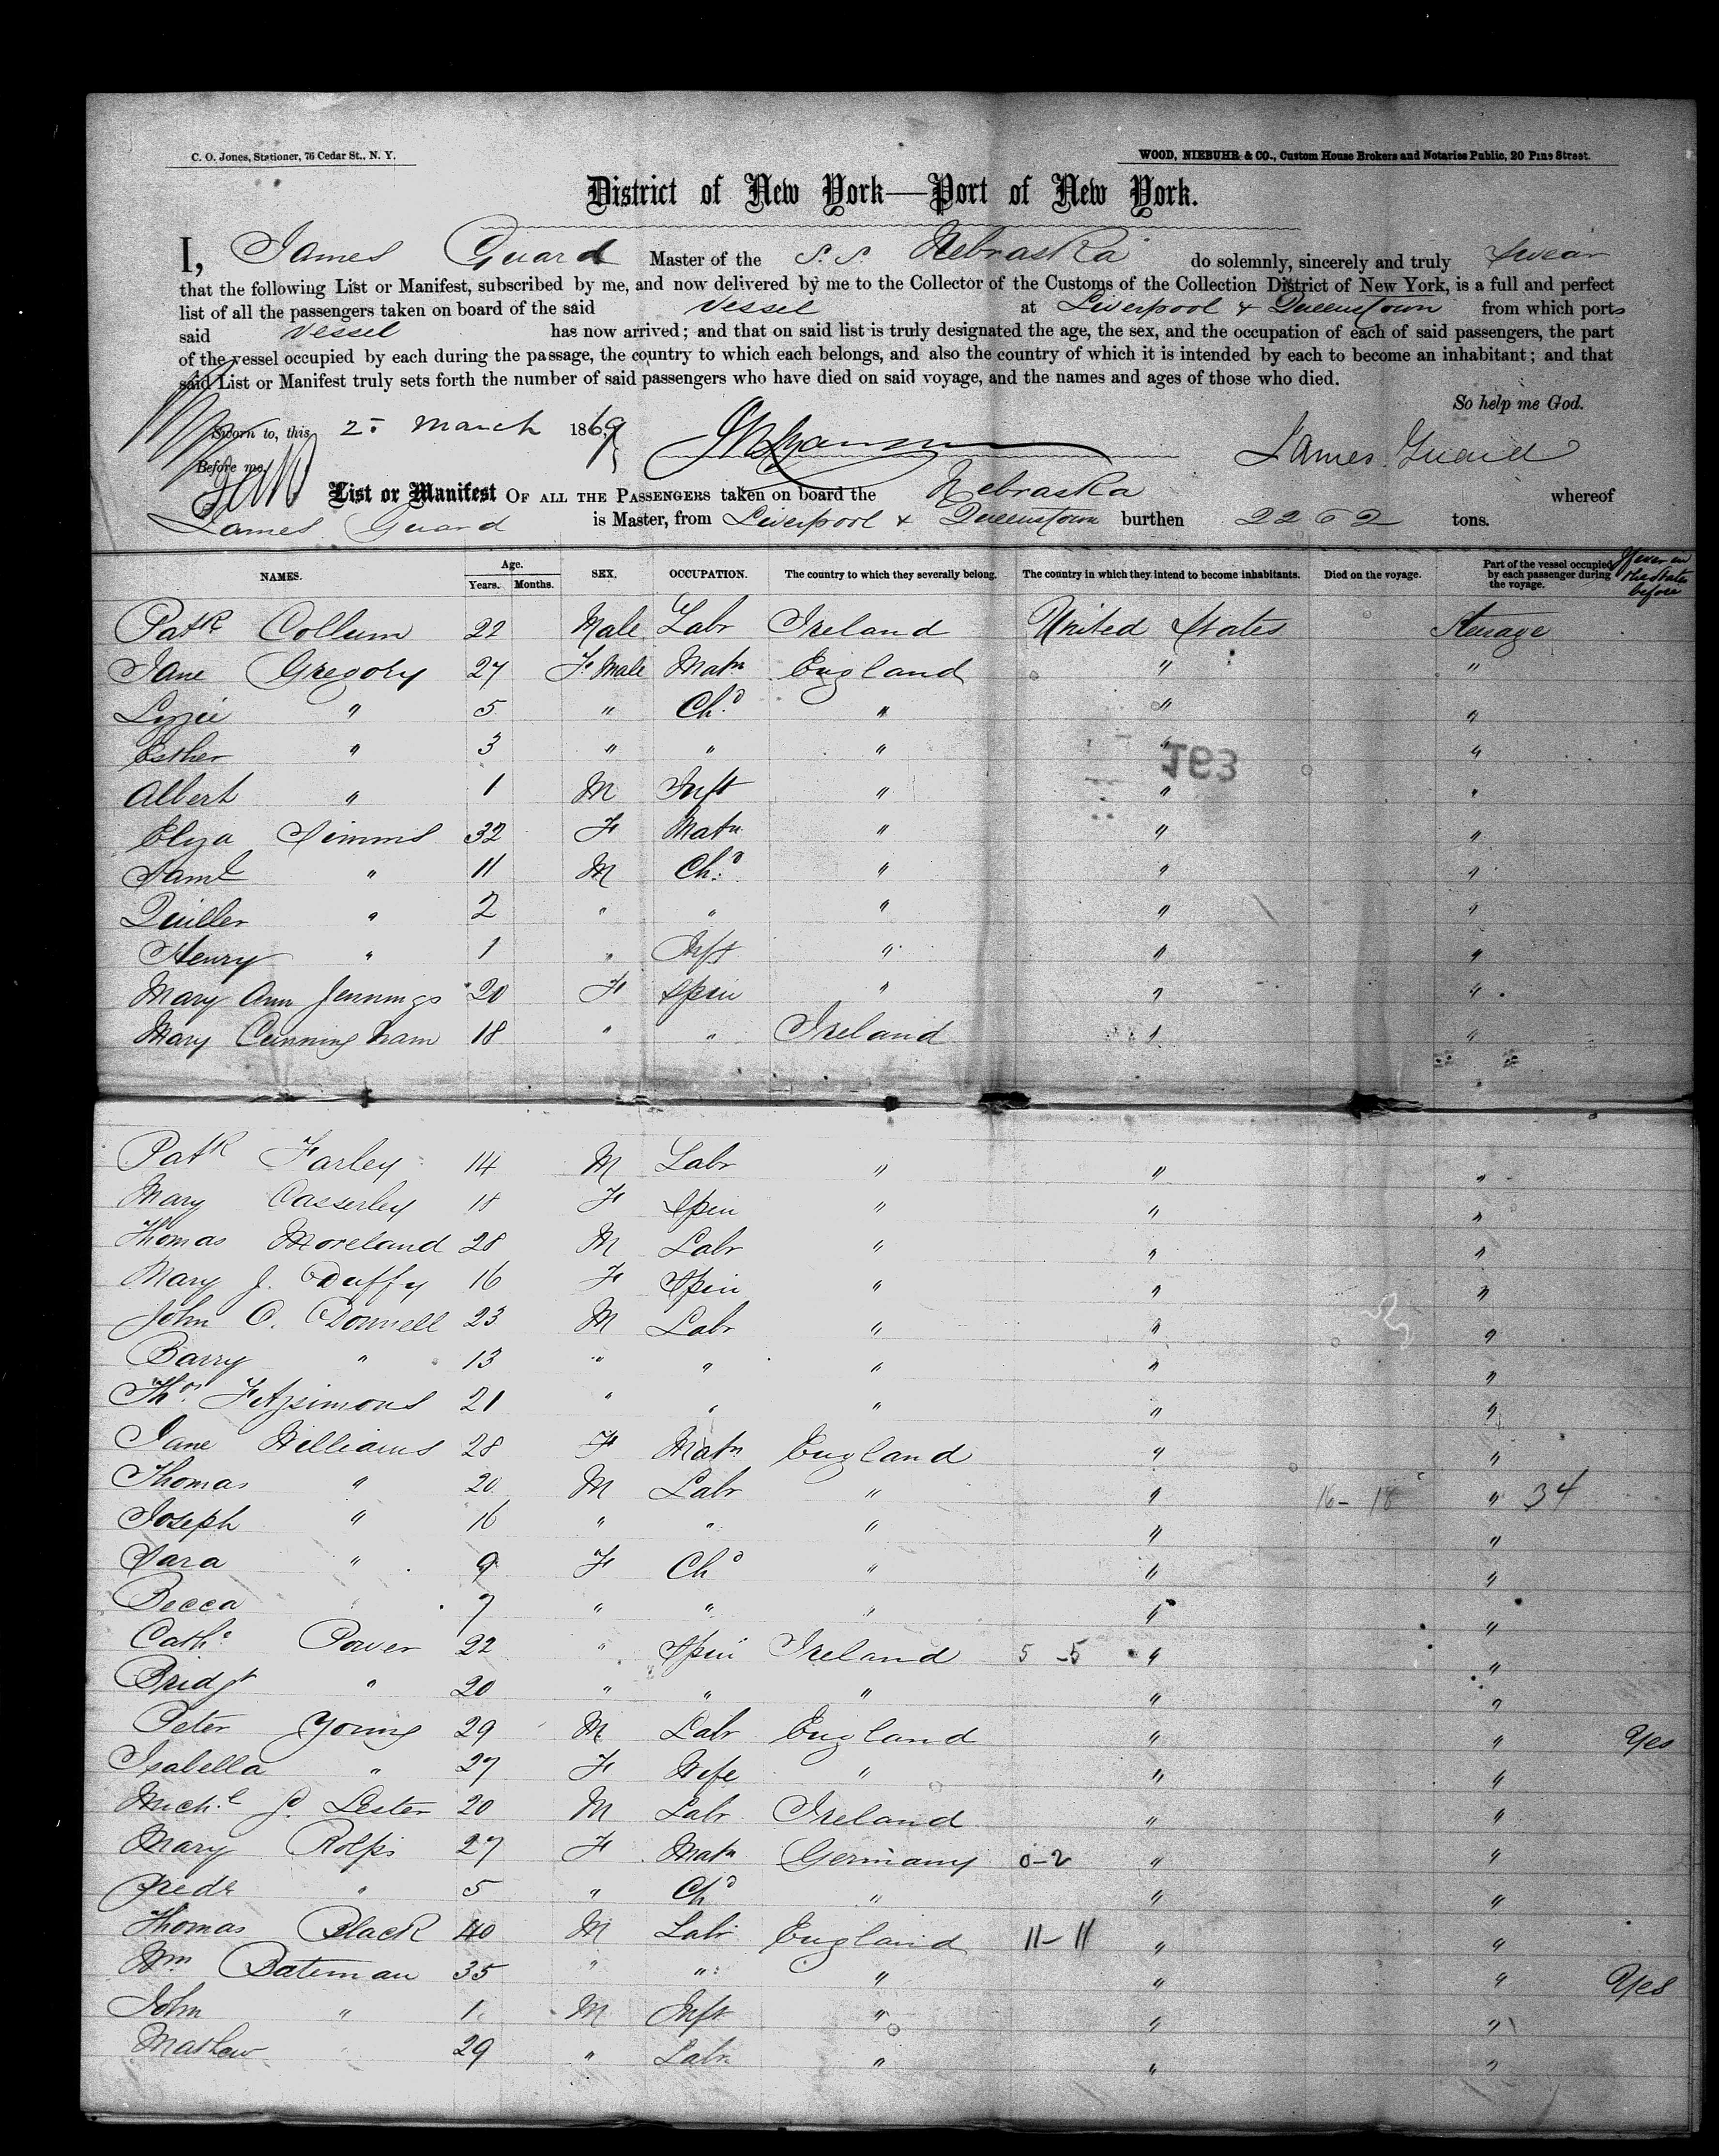 C. O. Jones, Stationer, 76 Cedar St., N. Y.
WOOD, NIEBUHR & CO., Custom House Brokers and Notaries Public, 20 Pine Street.
District of New York—Port of New York.
I, James Guard Master of the S. S. Nebraska do solemnly, sincerely and truly swear
that the following List or Manifest, subscribed by me, and now delivered by me to the Collector of the Customs of the Collection District of New York, is a full and perfect
list of all the passengers taken on board of the said Vessel at Liverpool & Queenstown from which ports
said Vessel has now arrived; and that on said list is truly designated the age, the sex, and the occupation of each of said passengers, the part
of the vessel occupied by each during the passage, the country to which each belongs, and also the country of which it is intended by each to become an inhabitant; and that
said List or Manifest truly sets forth the number of said passengers who have died on said voyage, and the names and ages of those who died.
So help me God.
Sworn to, this 2. March 1869
James Guard
Before me,
List or Manifest OF ALL THE PASSENGERS taken on board the Nebraska whereof
James Guard is Master, from Liverpool & Queenstown burthen 2262 tons.
NAMES. Age. Years. Months. SEX. OCCUPATION. The country to which they severally belong. The country in which they intend to become inhabitants. Died on the voyage. Part of the vessel occupied by each passenger during the voyage. If ever in the States before
Patk Collum 22 Male Labr Ireland United States Steerage
Jane Gregory 27 F. Male Matn England " "
Lizzie " 5 " Chd " " "
Esther " 3 " " " " "
193
Albert " 1 M Inft " " "
Eliza Simmis 32 F Matn " " "
Saml " 11 M Chd " " "
Quiller " 2 " " " " "
Henry " 1 " Inft " " "
Mary Ann Jennings 20 F Spin " " "
Mary Cunningham 18 " " Ireland " "
Patk Farley 14 M Labr " " "
Mary Casserley 18 F Spin " " "
Thomas Moreland 28 M Labr " " "
Mary J. Duffy 16 F Spin " " "
John O. Donnell 23 M Labr " " "
Barry " 13 " " " " "
Thos Fitzsimons 21 " " " " "
Jane Williams 28 F Matn England " "
Thomas " 20 M Labr " " 16-18 " 34
Joseph " 16 " " " " "
Sara " 9 F Chd " " "
Becca " 7 " " " " "
Cathe Power 22 " Spin Ireland 5-5 " "
Bridgt " 20 " " " " "
Peter Young 29 M Labr England " " Yes
Isabella " 27 F Wife " " "
Michl J. Lester 20 M Labr Ireland " "
Mary Rolfs 27 F Matn Germany 0-2 " "
Fredk " 5 " Chd " " "
Thomas Black 40 M Labr England 11-11 " "
Wm Bateman 35 " " " " " Yes
John " 1 M Inft " " "
Mathew " 29 " Labr " " "